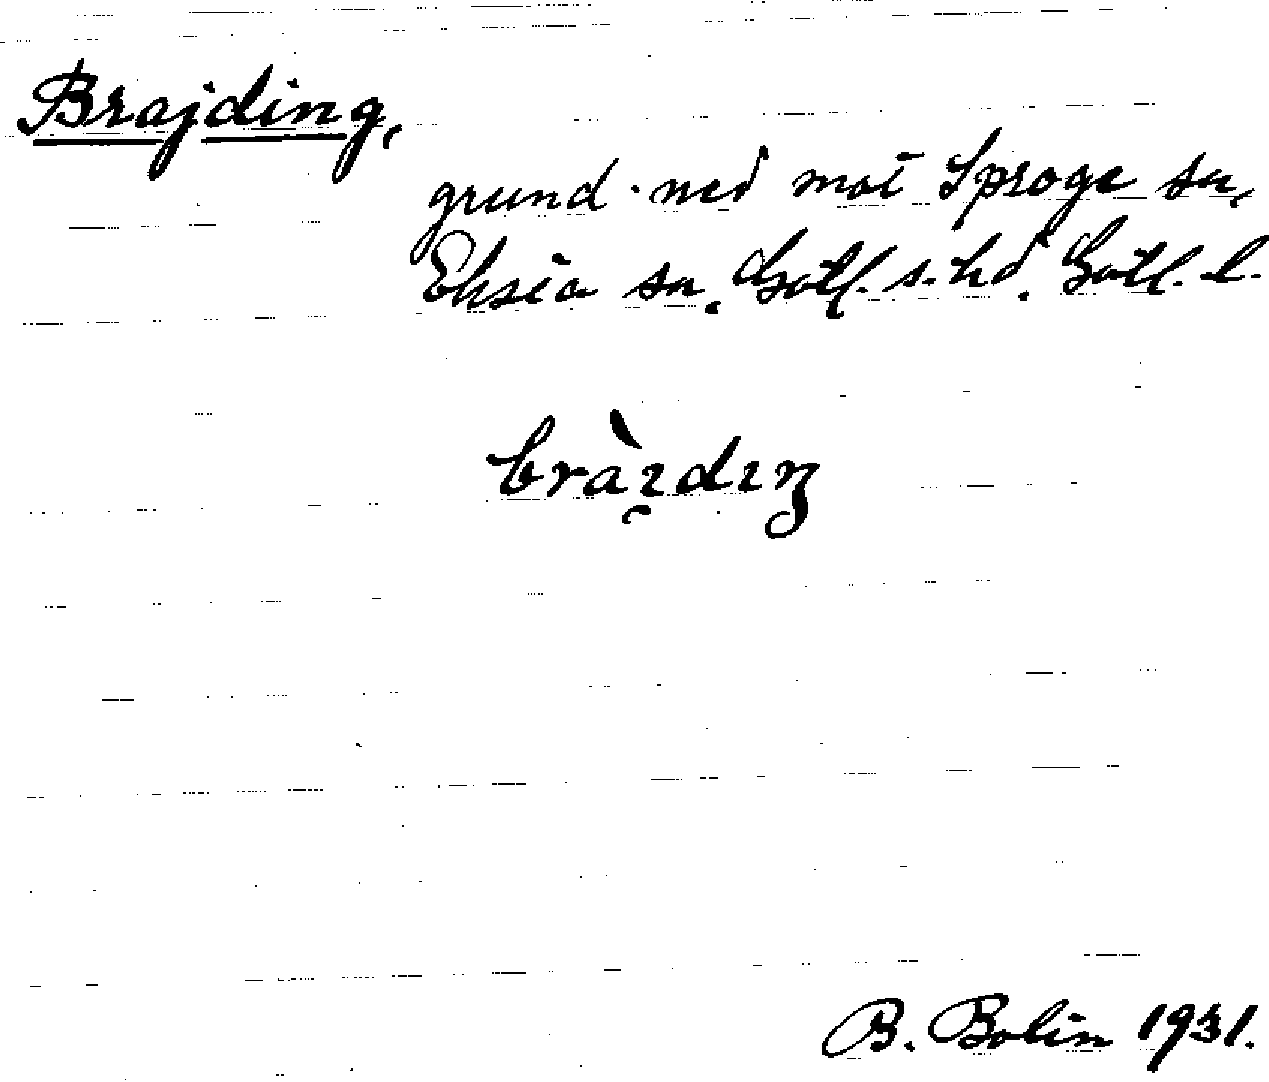 Brajding,
grund ned mot Sproge sn,
Eksta sn. Gotl. s. hd. Gotl. l.
bràı̯dıŋ
B. Bolin 1931.